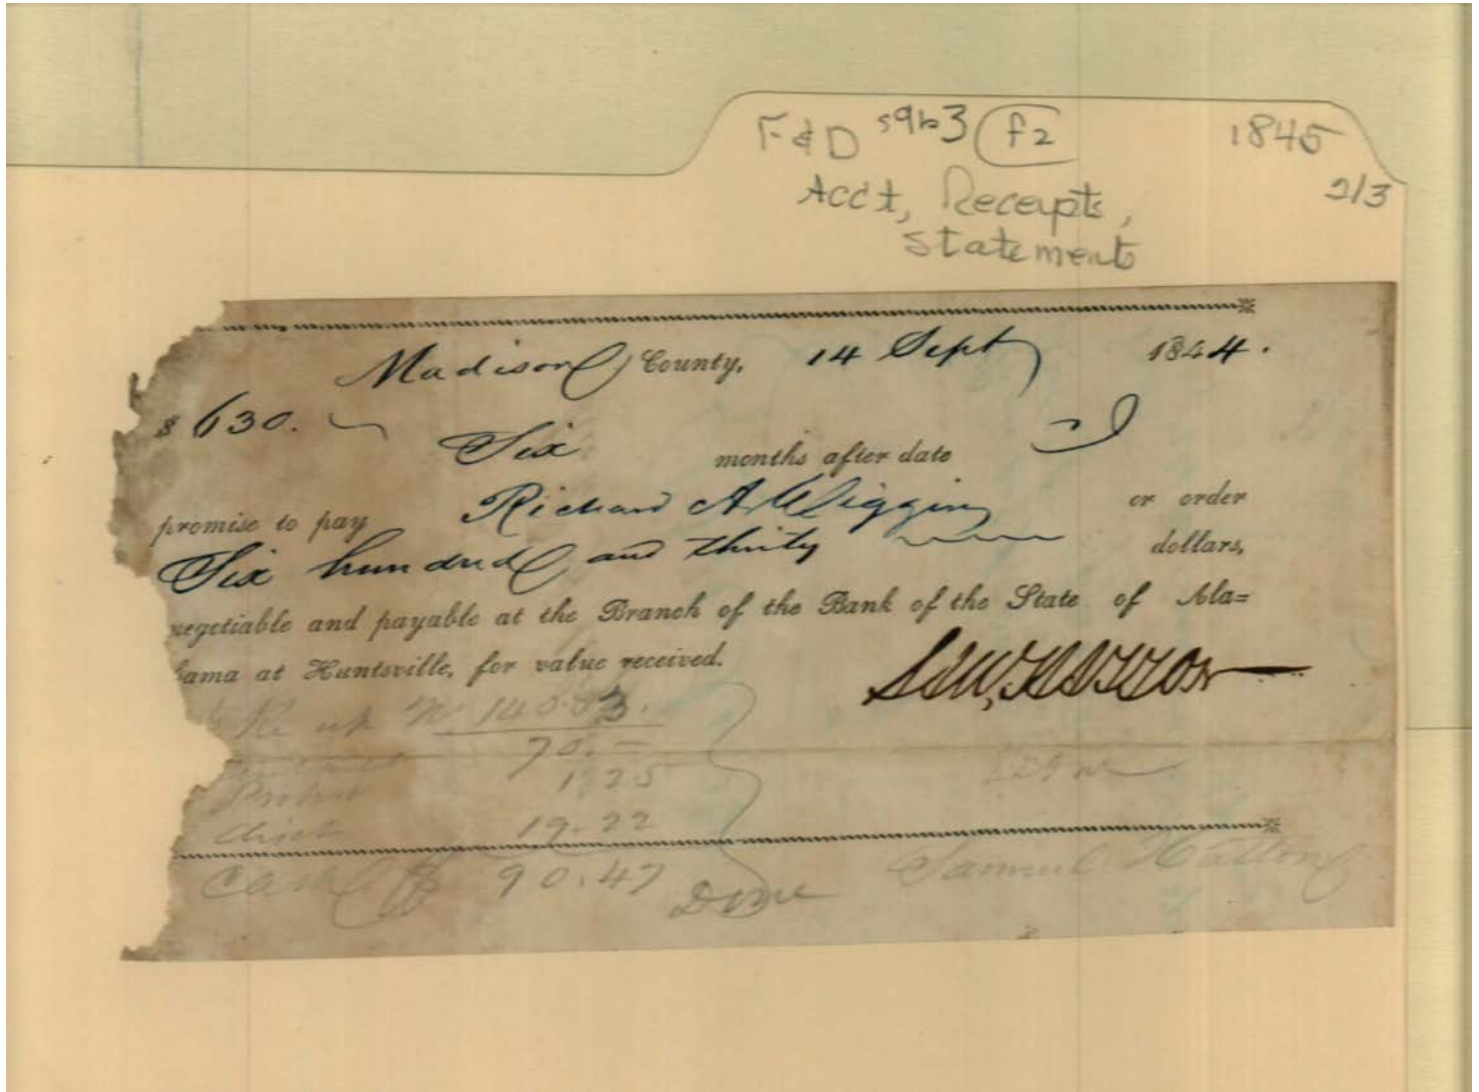 F & D s9b3 f2 1845
2/3
Acct, Receipts,
Statements
Madison County, 14 Sept 1844.
$ 630. Six months after date I
promise to pay Richard A. Wiggins or order
Six hundred and thirty dollars,
negotiable and payable at the Branch of the Bank of the State of Ala=
bama at Huntsville, for value received.
140.03.
70.-
1.25
19.22
90.47 Done Samuel